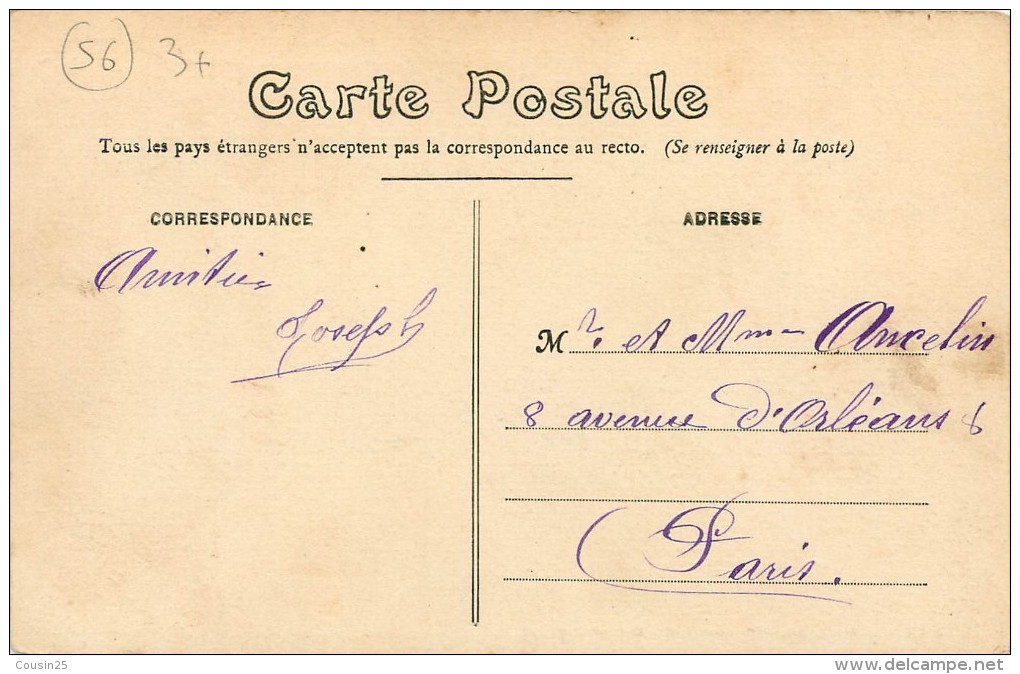 56 3+
Carte Postale
Tous les pays étrangers n'acceptent pas la correspondance au recto. (Se renseigner à la poste)
CORRESPONDANCE
Amitié
Joseph
ADRESSE
Mr et Mme Ancelin
8 avenue d'Orléans 8
Paris.
Cousin25
www.delcampe.net